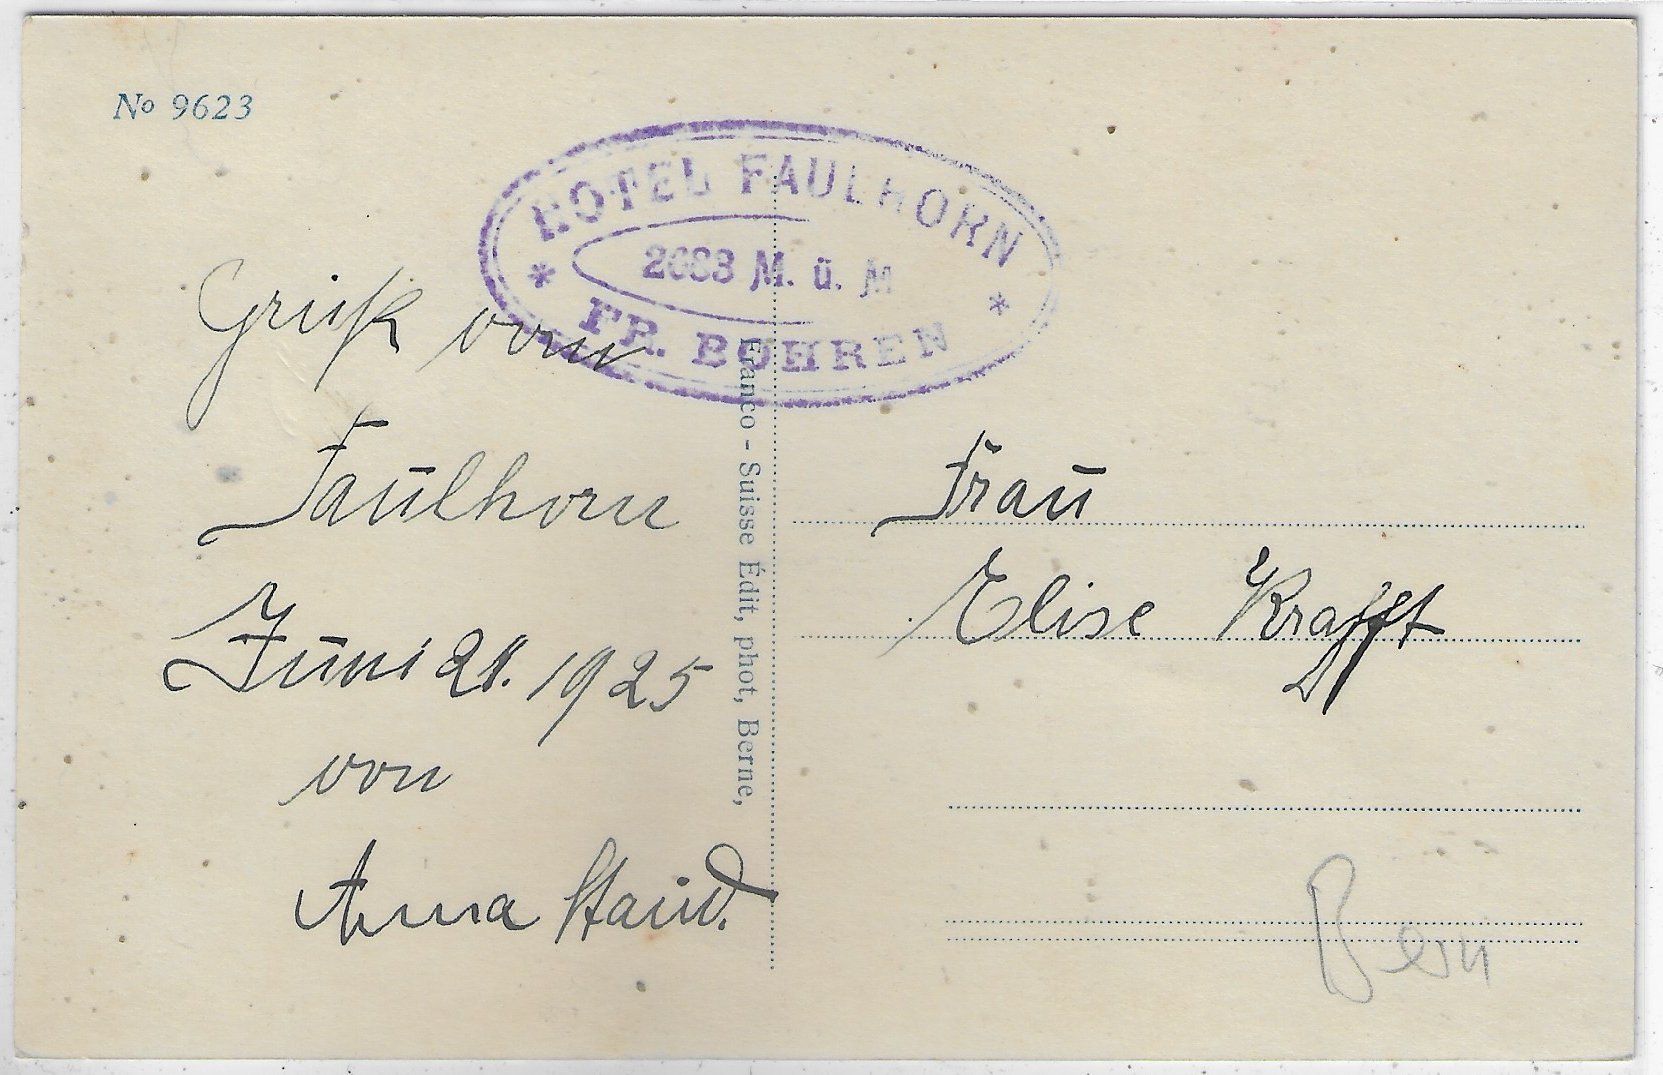 No 9623
HOTEL FAULHORN
2683 M. ü. M
FR. BOHREN
Gruß vom
Faulhorn
Juni 21. 1925
von
Anna
Franco-Suisse Édit, phot, Berne,
Frau
Elise Krafft
Bern